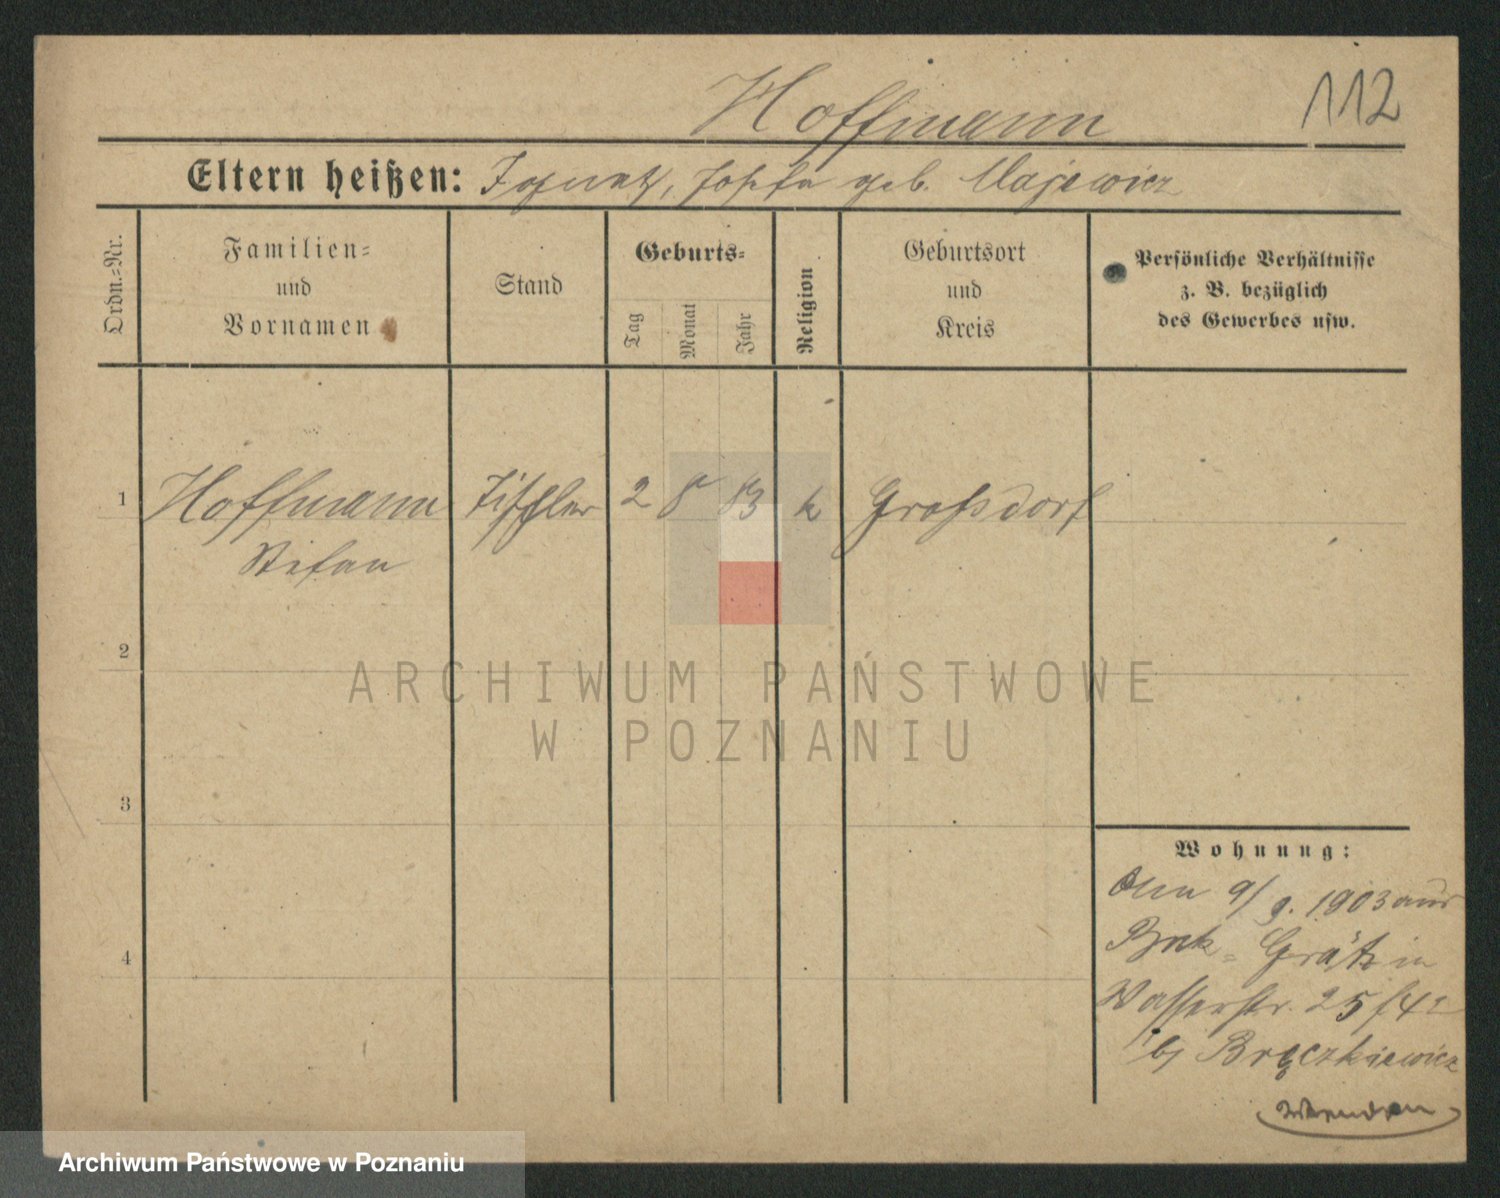 Hoffmann
112
Eltern heißen: Ignatz, Josefa geb. Majewicz
Ordn.=Nr.
Familien=
und
Vornamen
Stand
Geburts=
Tag
Monat
Jahr
Religion
Geburtsort
und
Kreis
Persönliche Verhältnisse
z. B. bezüglich
des Gewerbes usw.
1 Hoffmann Tischler 2 8 83 k Großdorf
Stefan
2
3
4
ARCHIWUM PAŃSTWOWE
W POZNANIU
Wohnung:
9/9. 1903 aus
Grätz in
Wasserstr. 25
b/ Bręczkiewicz
Wenden
Archiwum Państwowe w Poznaniu